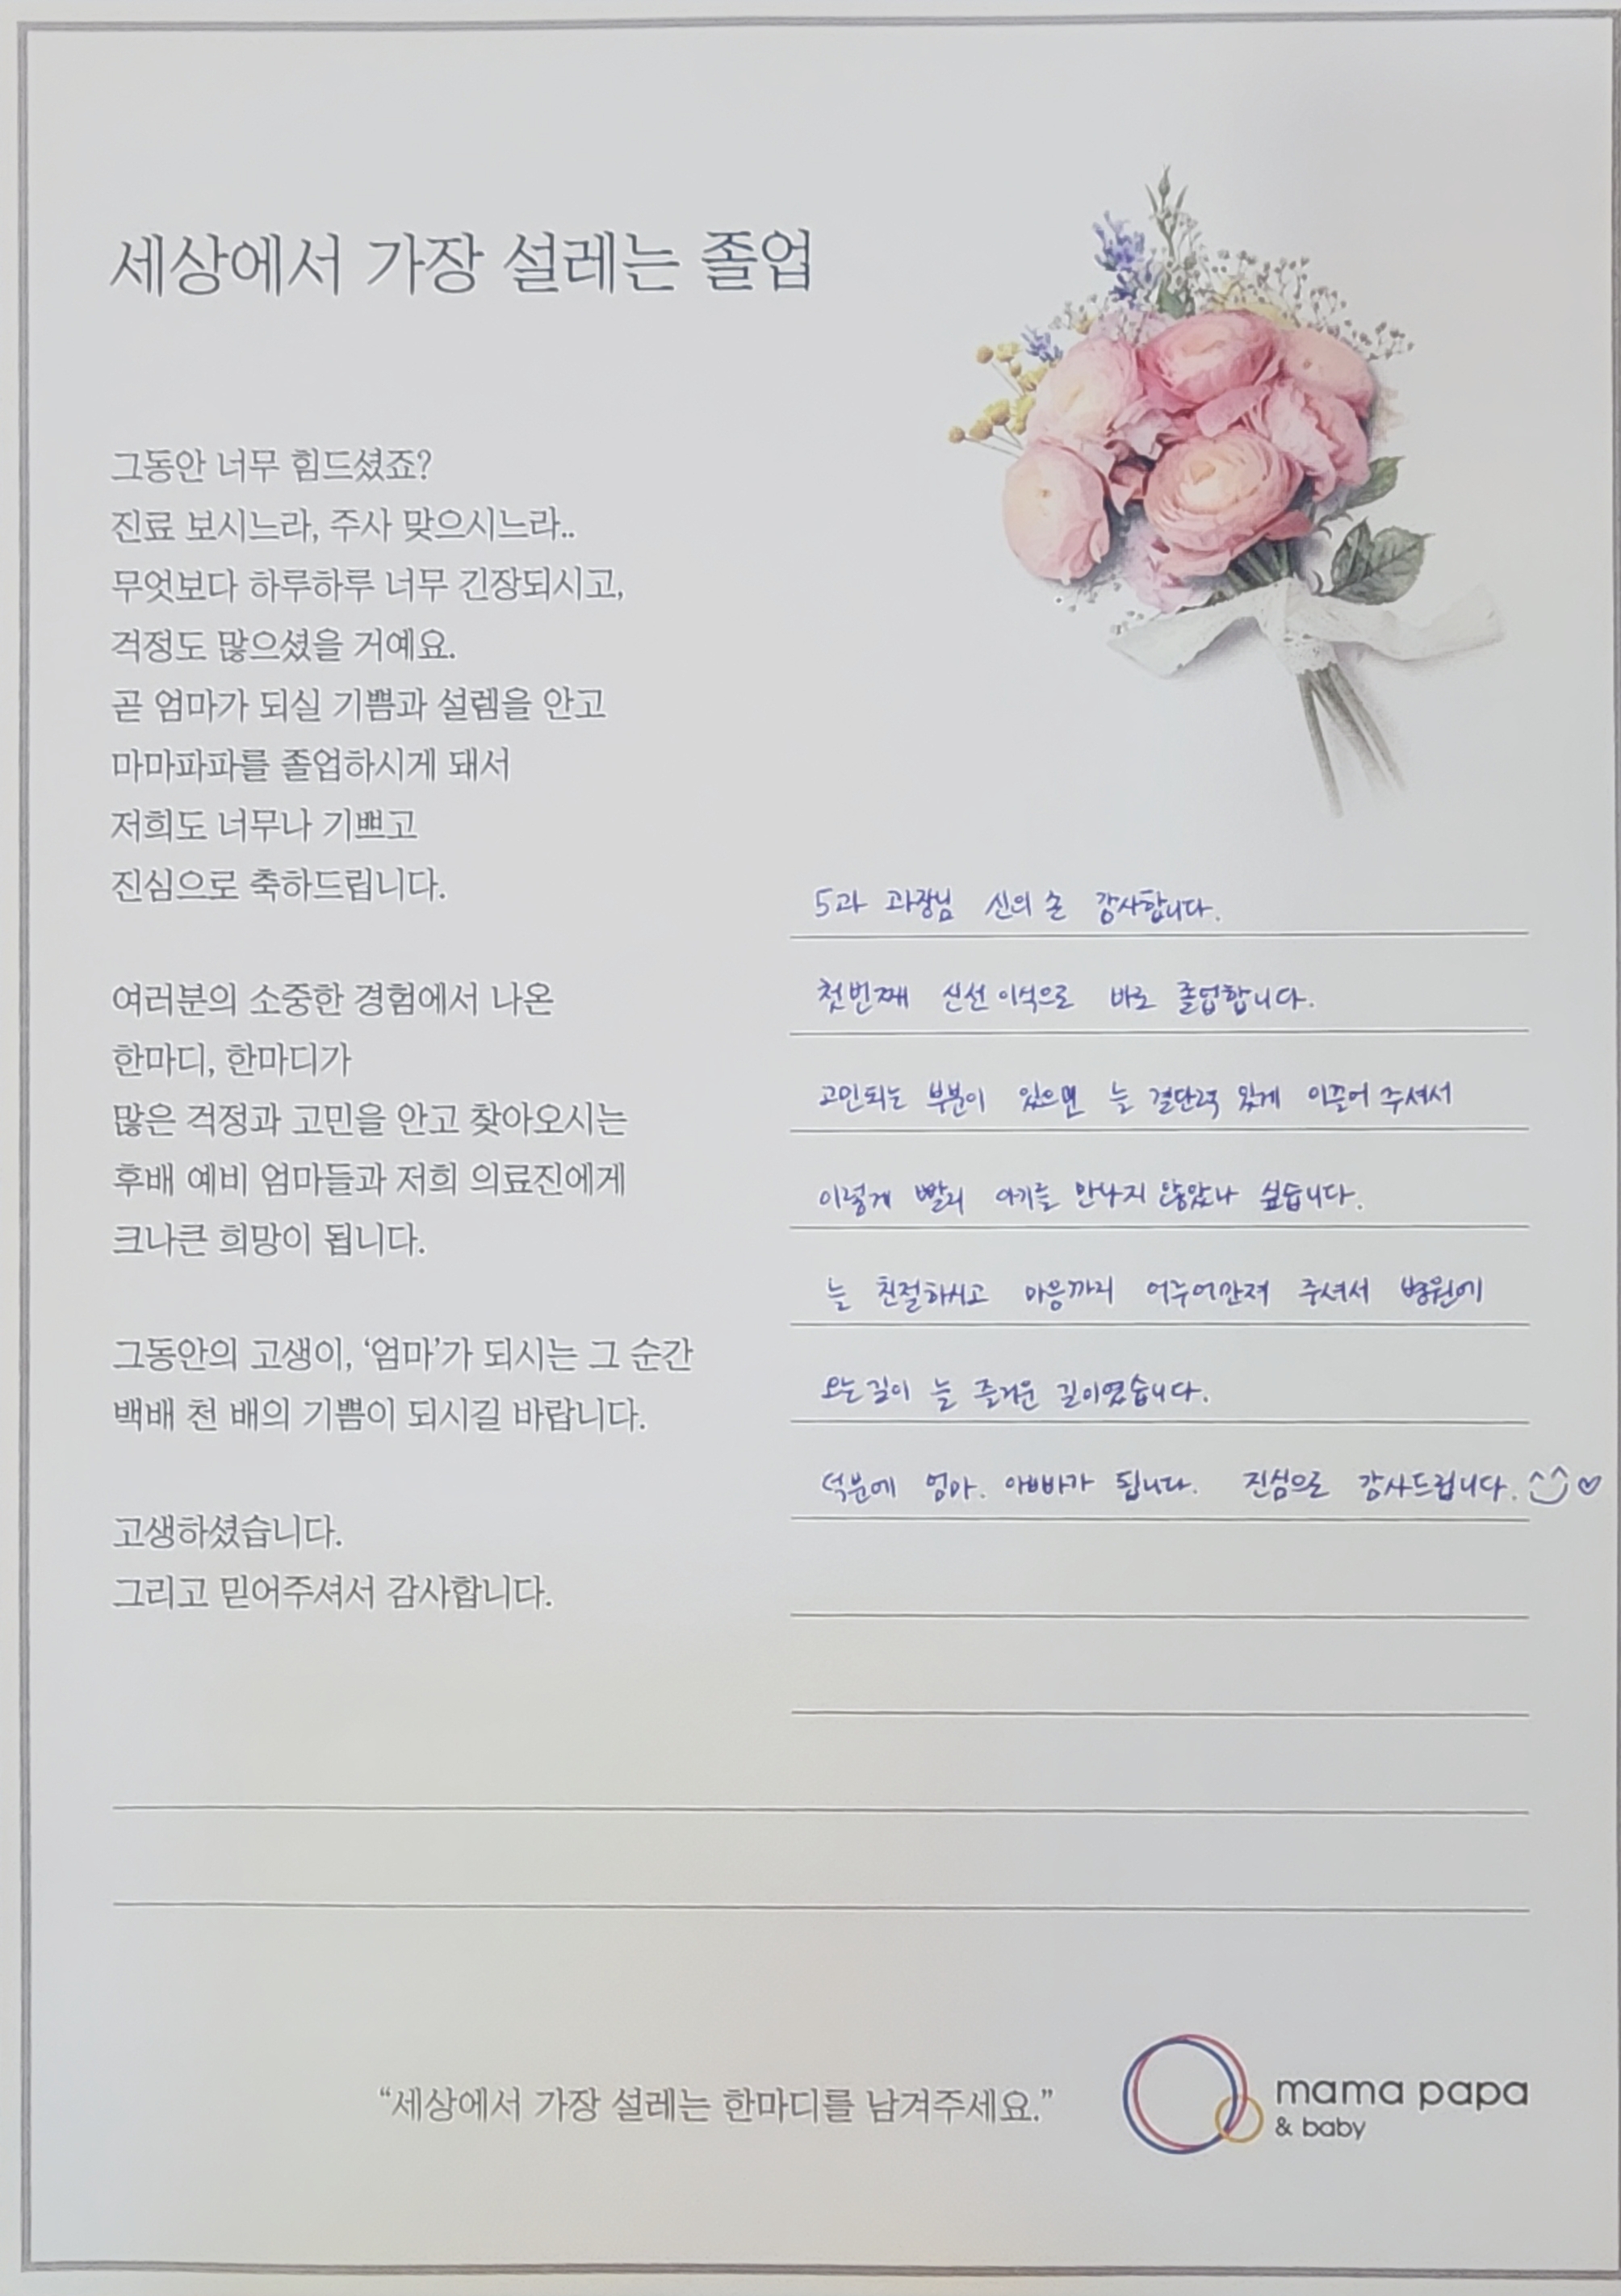 세상에서 가장 설레는 졸업
그동안 너무 힘드셨죠?
진료 보시느라, 주사 맞으시느라..
무엇보다 하루하루 너무 긴장되시고,
걱정도 많으셨을 거예요.
곧 엄마가 되실 기쁨과 설렘을 안고
마마파파를 졸업하시게 돼서
저희도 너무나 기쁘고
진심으로 축하드립니다.
여러분의 소중한 경험에서 나온
한마디, 한마디가
많은 걱정과 고민을 안고 찾아오시는
후배 예비 엄마들과 저희 의료진에게
크나큰 희망이 됩니다.
그동안의 고생이, ‘엄마’가 되시는 그 순간
백배 천 배의 기쁨이 되시길 바랍니다.
고생하셨습니다.
그리고 믿어주셔서 감사합니다.
5과 과장님 신의 손 감사합니다.
첫번째 신선 이식으로 바로 졸업합니다.
고민되는 부분이 있으면 늘 결단력 있게 이끌어 주셔서
이렇게 빨리 아기를 만나지 않았나 싶습니다.
늘 친절하시고 마음까지 어루어만져 주셔서 병원에
오는길이 늘 즐거운 길이였습니다.
덕분에 엄마. 아빠가 됩니다. 진심으로 감사드립니다. ^^ ♡
“세상에서 가장 설레는 한마디를 남겨주세요.”
mama papa
& baby